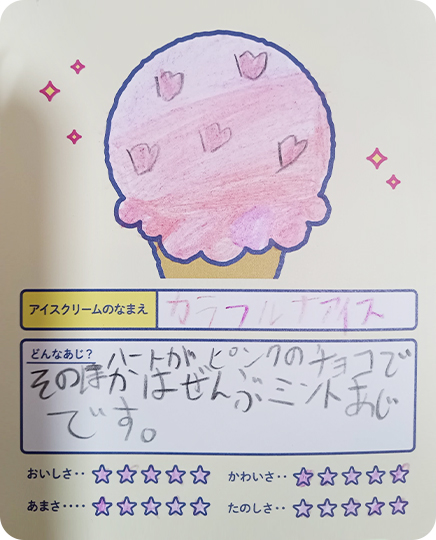 アイスクリームのなまえ
カラフルナアイス
どんなあじ？
ハートがピンクのチョコで
そのほかはぜんぶミントあじ
です。
おいしさ‥☆☆☆☆☆ かわいさ‥☆☆☆☆☆
あまさ‥‥☆☆☆☆☆ たのしさ‥☆☆☆☆☆